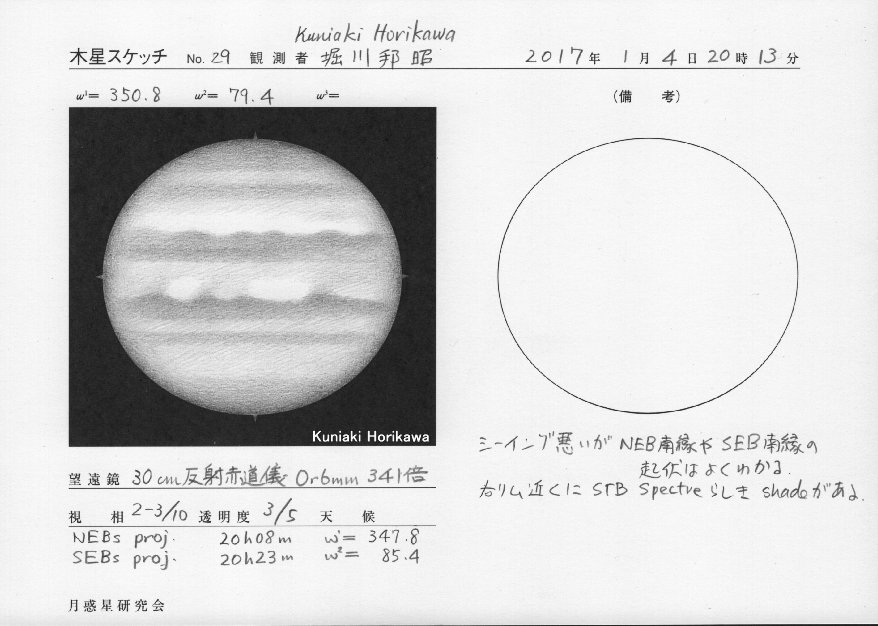 Kuniaki Horikawa
木星スケッチ No. 29 観測者 堀川邦昭 2017年 1月 4日 20時 13分
ω¹= 350.8 ω²= 79.4 ω³=
(備 考)
Kuniaki Horikawa
シーイング悪いが NEB南縁や SEB南縁の
起伏はよくわかる.
右リム近くに STB Spectreらしき shadeがある.
望遠鏡 30cm反射赤道儀 Or6mm 341倍
視 相 2-3/10 透明度 3/5 天 候
NEBs proj. 20h08m ω¹= 347.8
SEBs proj. 20h23m ω²= 85.4
月惑星研究会